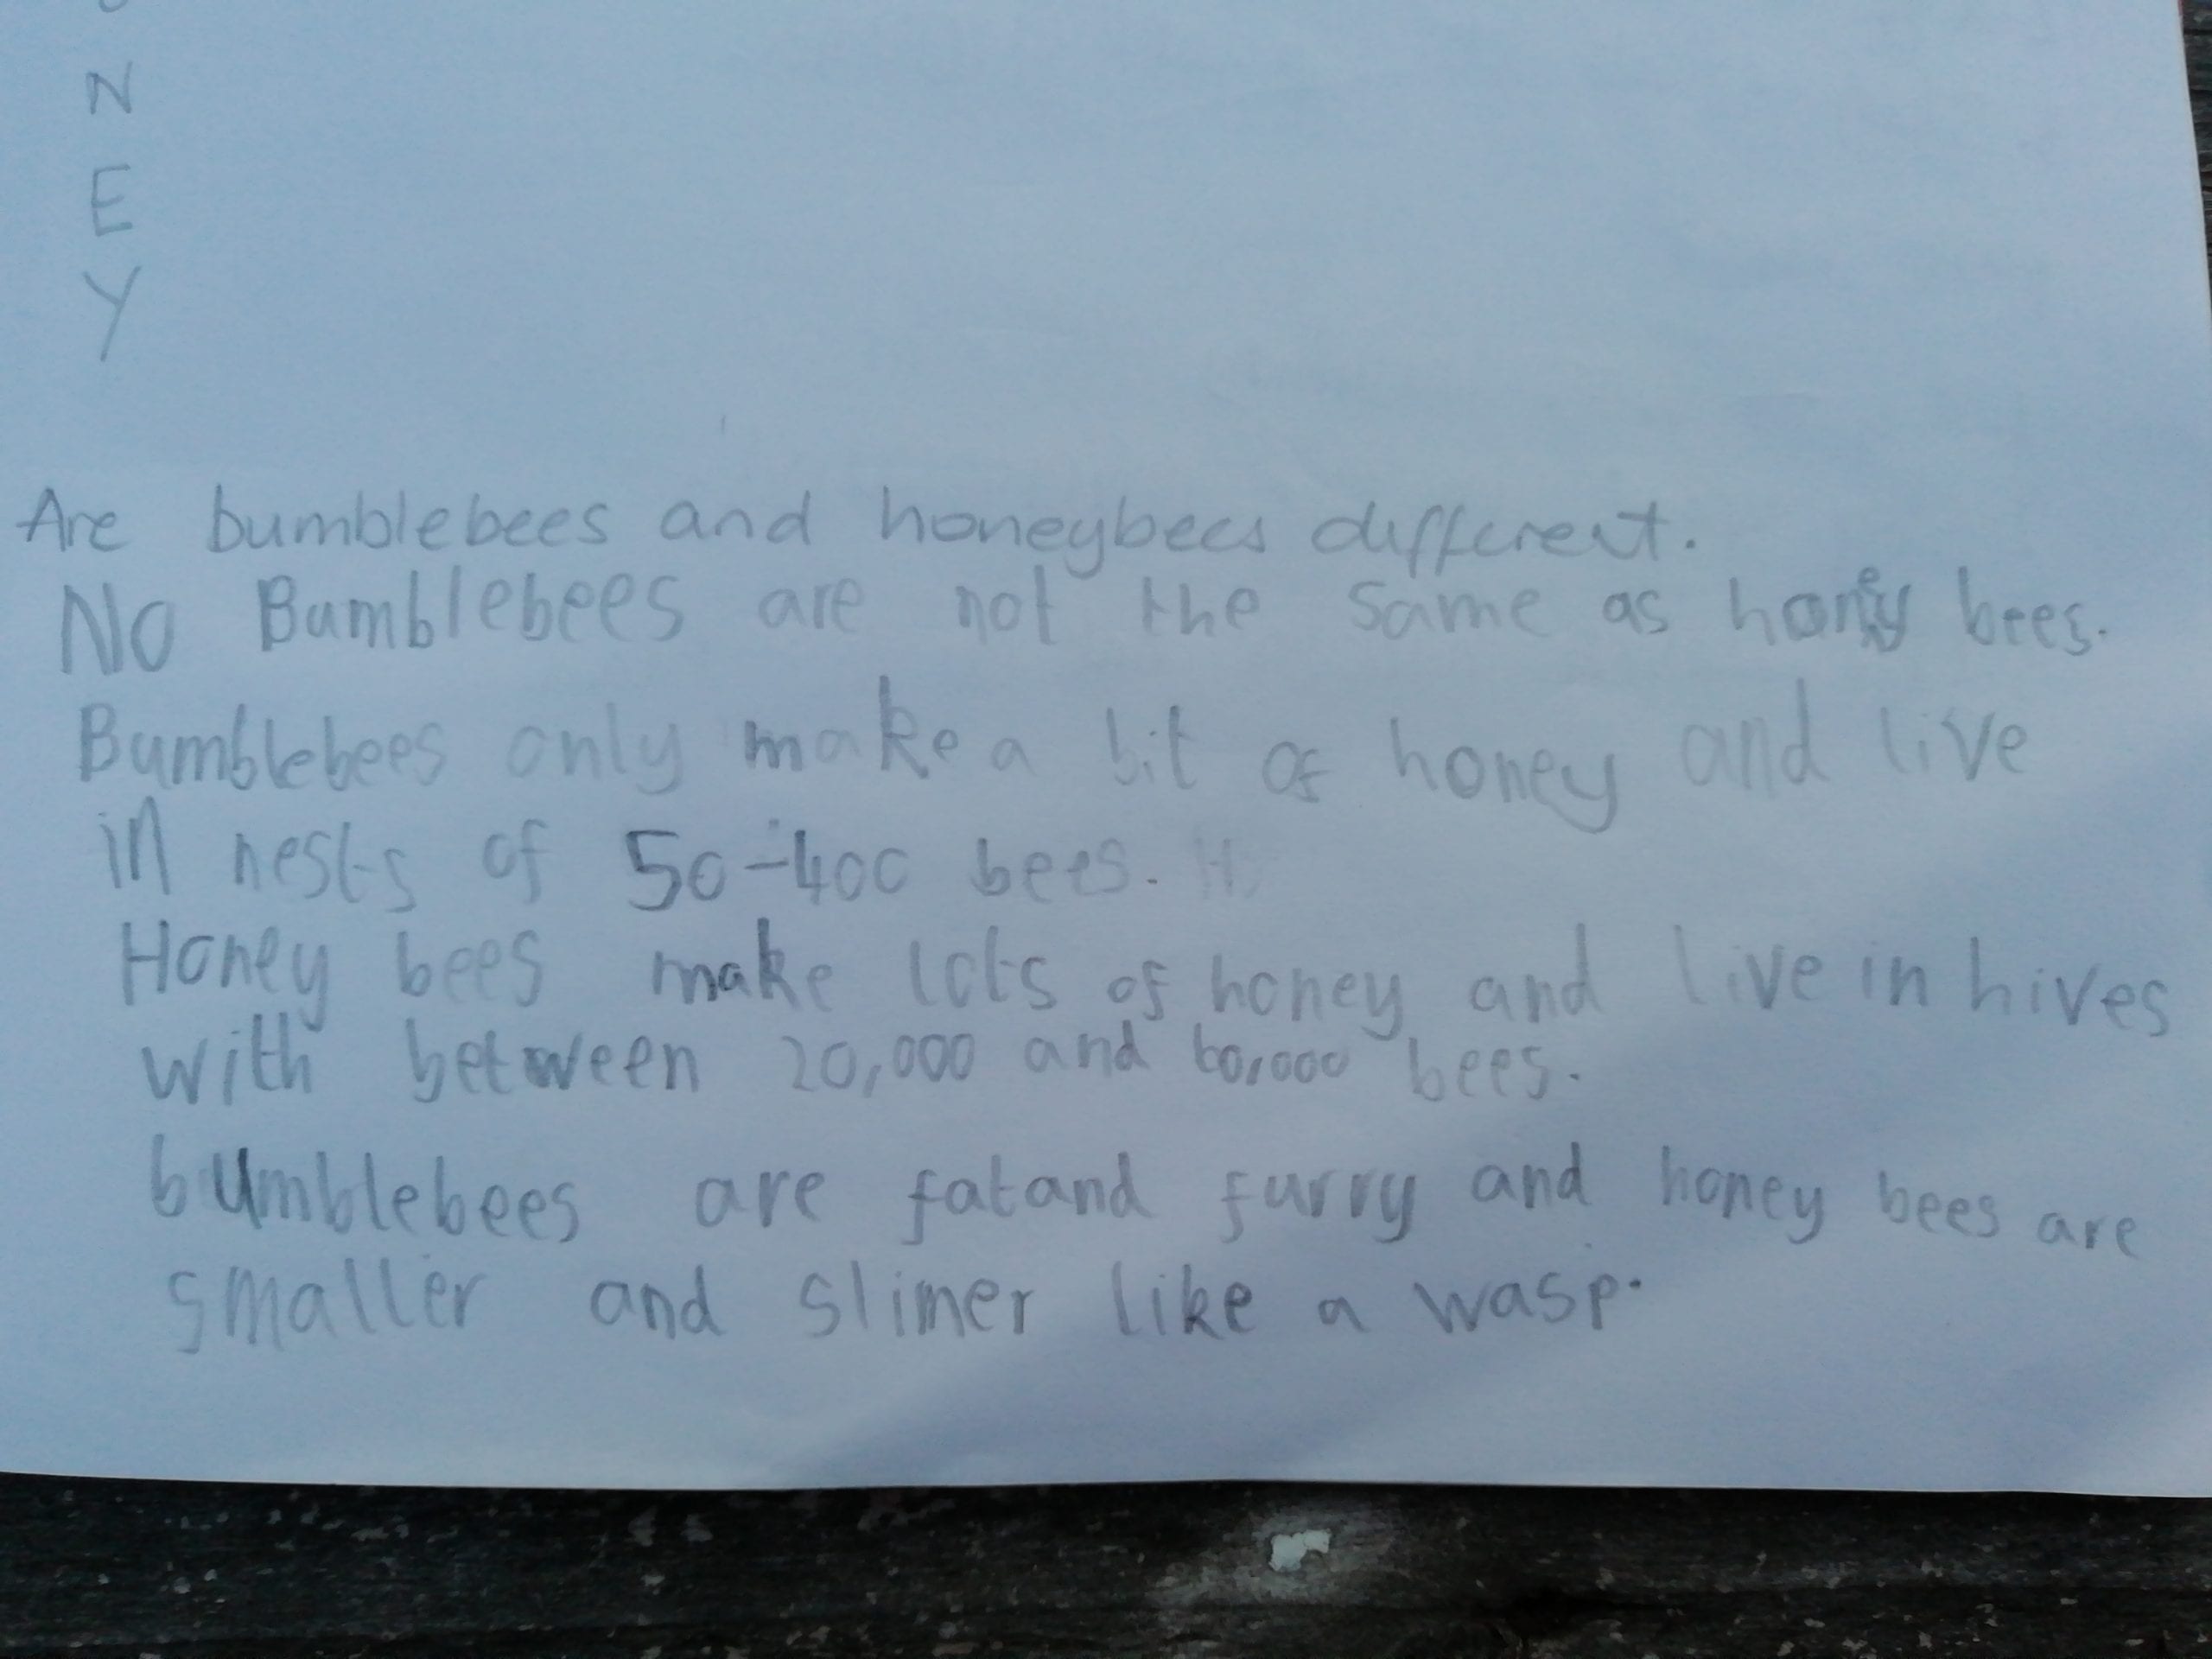 N
E
Y
Are bumblebees and honeybees different.
No Bumblebees are not the same as honey bees.
Bumblebees only make a bit of honey and live
in nests of 50-400 bees. H
Honey bees make lots of honey and live in hives
with between 20,000 and 60,000 bees.
bumblebees are fat and furry and honey bees are
smaller and slimer like a wasp.